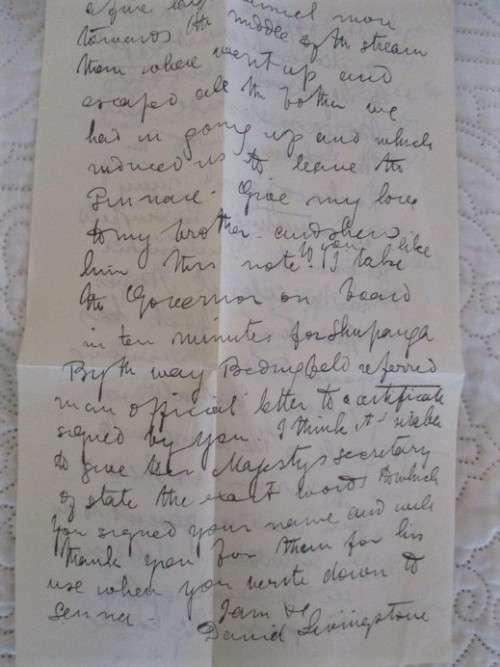 a fine large channel more
towards the middle of the stream
than where went up and
escaped all the bother we
had in going up and which
induced us to leave the
Pinnace. Give my love
to my brother and shew
him this note if you like
I take
the Governor on board
in ten minutes for Shupanga
By the way Bedingfeld referred
in an official letter to a certificate
signed by you. I think it
to give Her Majestys secretary
of state the exact words to which
you signed your name and will
thank you for them for his
use when you write down to
Senna. I am &c
David Livingstone